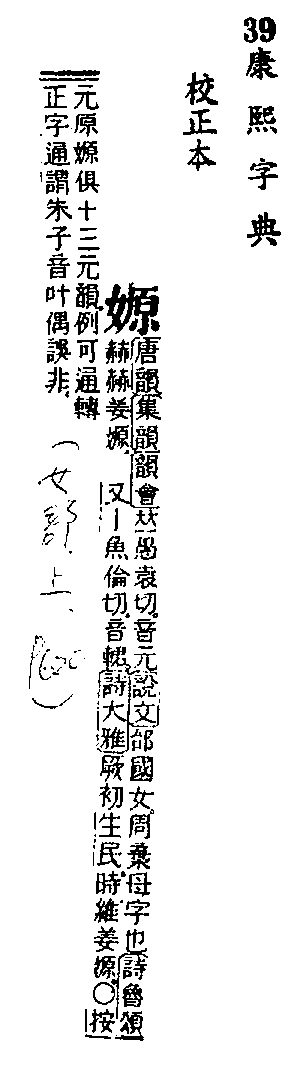 39
康熙字典
校正本
嫄
唐韻集韻韻會𠀤愚袁切。音元說文邰國女。周棄母字也詩魯頌
赫赫姜嫄。又丨魚倫切。音輑詩大雅厥初生民。時維姜嫄。○按
元原嫄俱十三元韻。例可通轉
正字通謂朱子音叶偶誤非。
(女部上、